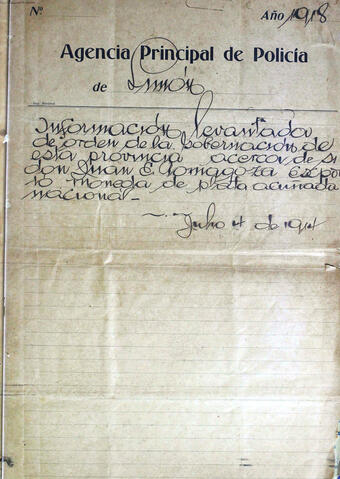 Nº Año 1918
Agencia Principal de Policía
de Limón
Información levantada
de orden de la gobernación de
esta provincia acerca de si
don Juan E. Romagosa expor
tó moneda de plata acuñada
nacional -
Julio 4 de 191